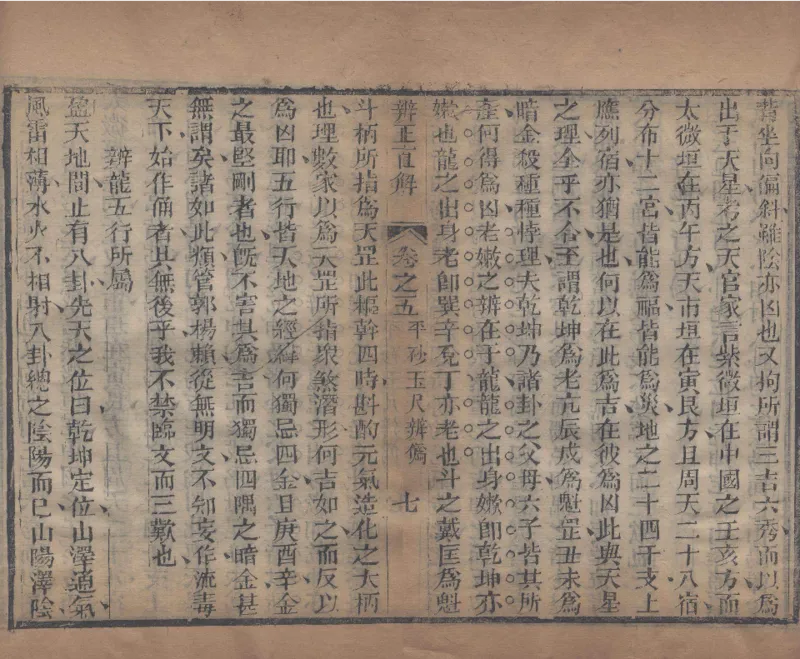 背坐向偏斜雖陰亦凶也又拘所謂三吉六秀而以爲
出于天星考之天官家言紫微垣在中國之壬亥方而
太微垣在丙午方天市垣在寅艮方且周天二十八宿
分布十二宮皆能爲福皆能爲災地之二十四干支上
應列宿亦猶是也何以在此爲吉在彼爲凶此與天星
之理全乎不合至謂乾坤爲老亢辰戌爲魁罡丑未爲
暗金殺種種悖理夫乾坤乃諸卦之父母六子皆其所
產何得爲凶老嫩之辨在于龍龍之出身嫩卽乾坤亦
嫩也龍之出身老卽巽辛兌丁亦老也斗之戴匡爲魁
辨正直解 卷之五 平砂玉尺辨僞 七
斗柄所指爲天罡此樞幹四時斟酌元氣造化之大柄
也理數家以爲天罡所指衆煞潛形何吉如之而反以
爲凶耶五行皆天地之經緯何獨忌四金且庚酉辛金
之最堅剛者也旣不害其爲吉而獨忌四隅之暗金甚
無謂矣諸如此類管郭楊賴從無明文不知妄作流毒
天下始作俑者其無後乎我不禁臨文而三歎也
辨龍五行所屬
盈天地間止有八卦先天之位曰乾坤定位山澤通氣
風雷相薄水火不相射八卦總之陰陽而已山陽澤陰